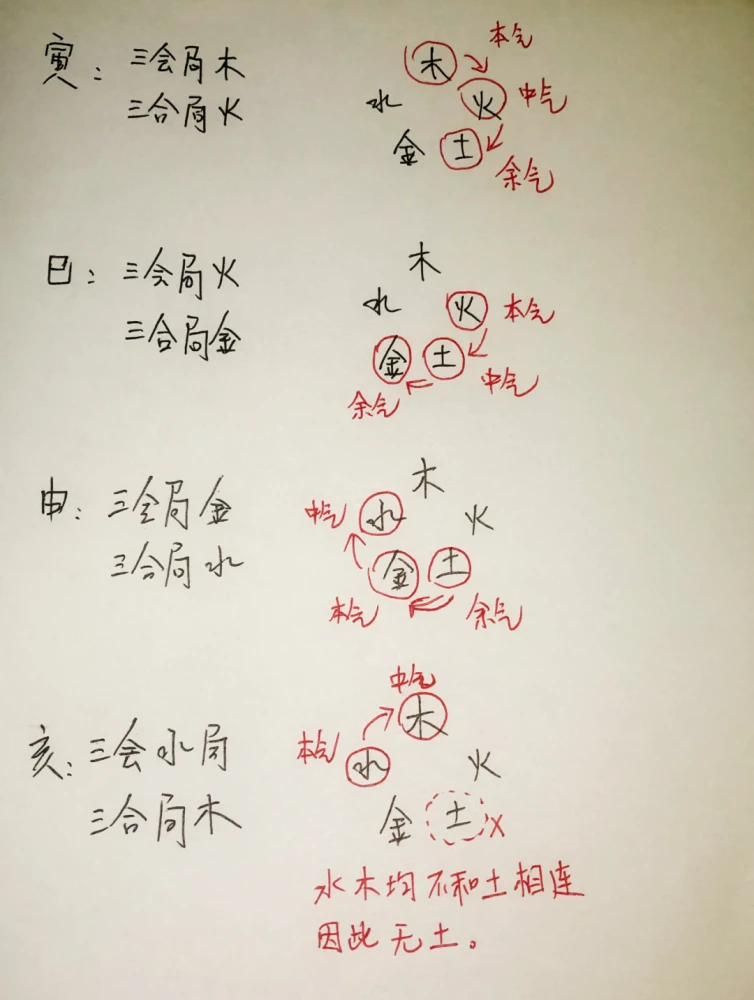 寅：三会局木
三合局火
木 本气
水 火 中气
金 土 余气
巳：三会局火
三合局金
木
水 火 本气
金 土 中气
余气
申：三会局金
三合局水
木
中气 水 火
金 土
本气 余气
亥：三会水局
三合局木
中气
木
本气 水 火
金 土 X
水木均不和土相连
因此无土。